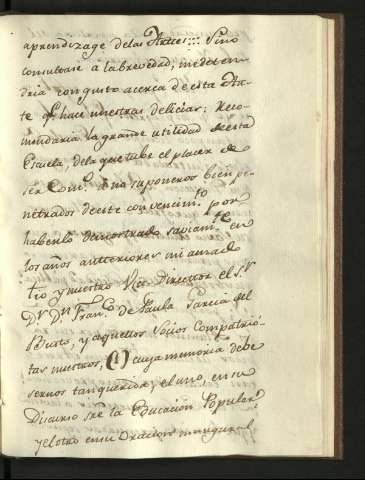 aprendizage de las Artes::: Sino
consultase á la brevedad, me deten-
dria con gusto acerca de esta Ar-
te q.e hace nuestras delicias: Reco-
mendaria la grande utilidad de esta
Escuela, de la que tube el placer de
ser Com.o á no suponeros bien pe-
netrados de este convencim.to por
haberlo demostrado sabiam.te en
los años anteriores mi amado
tio y nuestro Vice Director el S.r
D.r D.n Fran.co de Paula Garcia del
Busto, y aquellos Socios Compatrio-
tas nuestros, cuya memoria debe
sernos tan querida; el uno, en su
Discurso sre la Educacion Popular,
y el otro en su Oracion inaugural